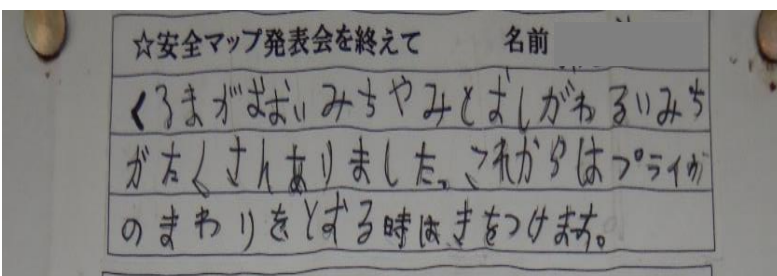 ☆安全マップ発表会を終えて 名前
くるまがおおいみちやみとおしがわるいみち
がたくさんありました。これからはプライガ
のまわりをとおる時はきをつけます。